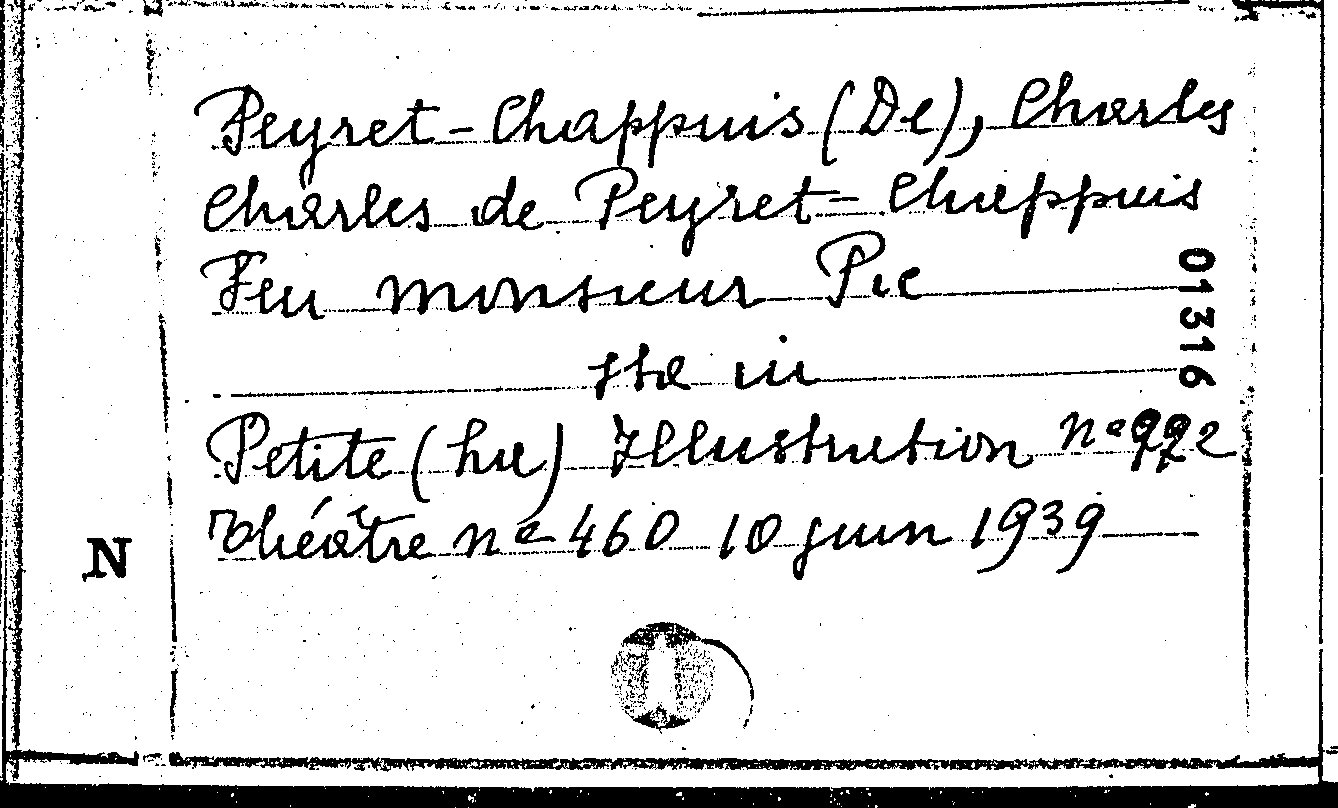 Peyret-Chappuis (De), Charles
Charles de Peyret-Chappuis
Feu monsieur Pic
in
Petite (La) Illustration nº 922
Théâtre nº 460 10 juin 1939
01316
N